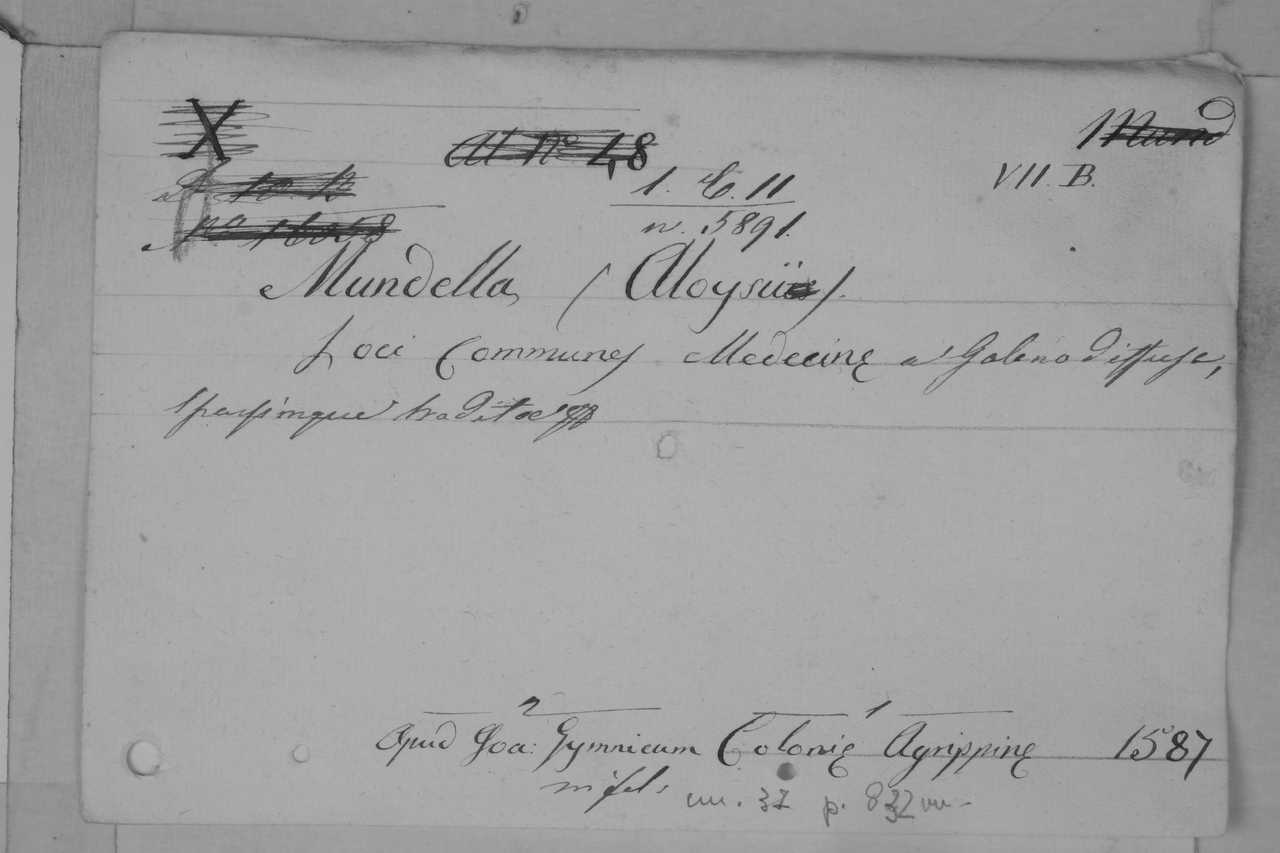 X
Al No 48
Mund
VII. B.
1. C. 11
n. 5891.
Mundella, (Aloysii).
Loci Communes Medecinę a Galeno diffuse,
sparsimque traditæ
2 1
Apud Joa: Gymnicum Colonię Agrippinę 1587
cm. 37 p. 832 nn-